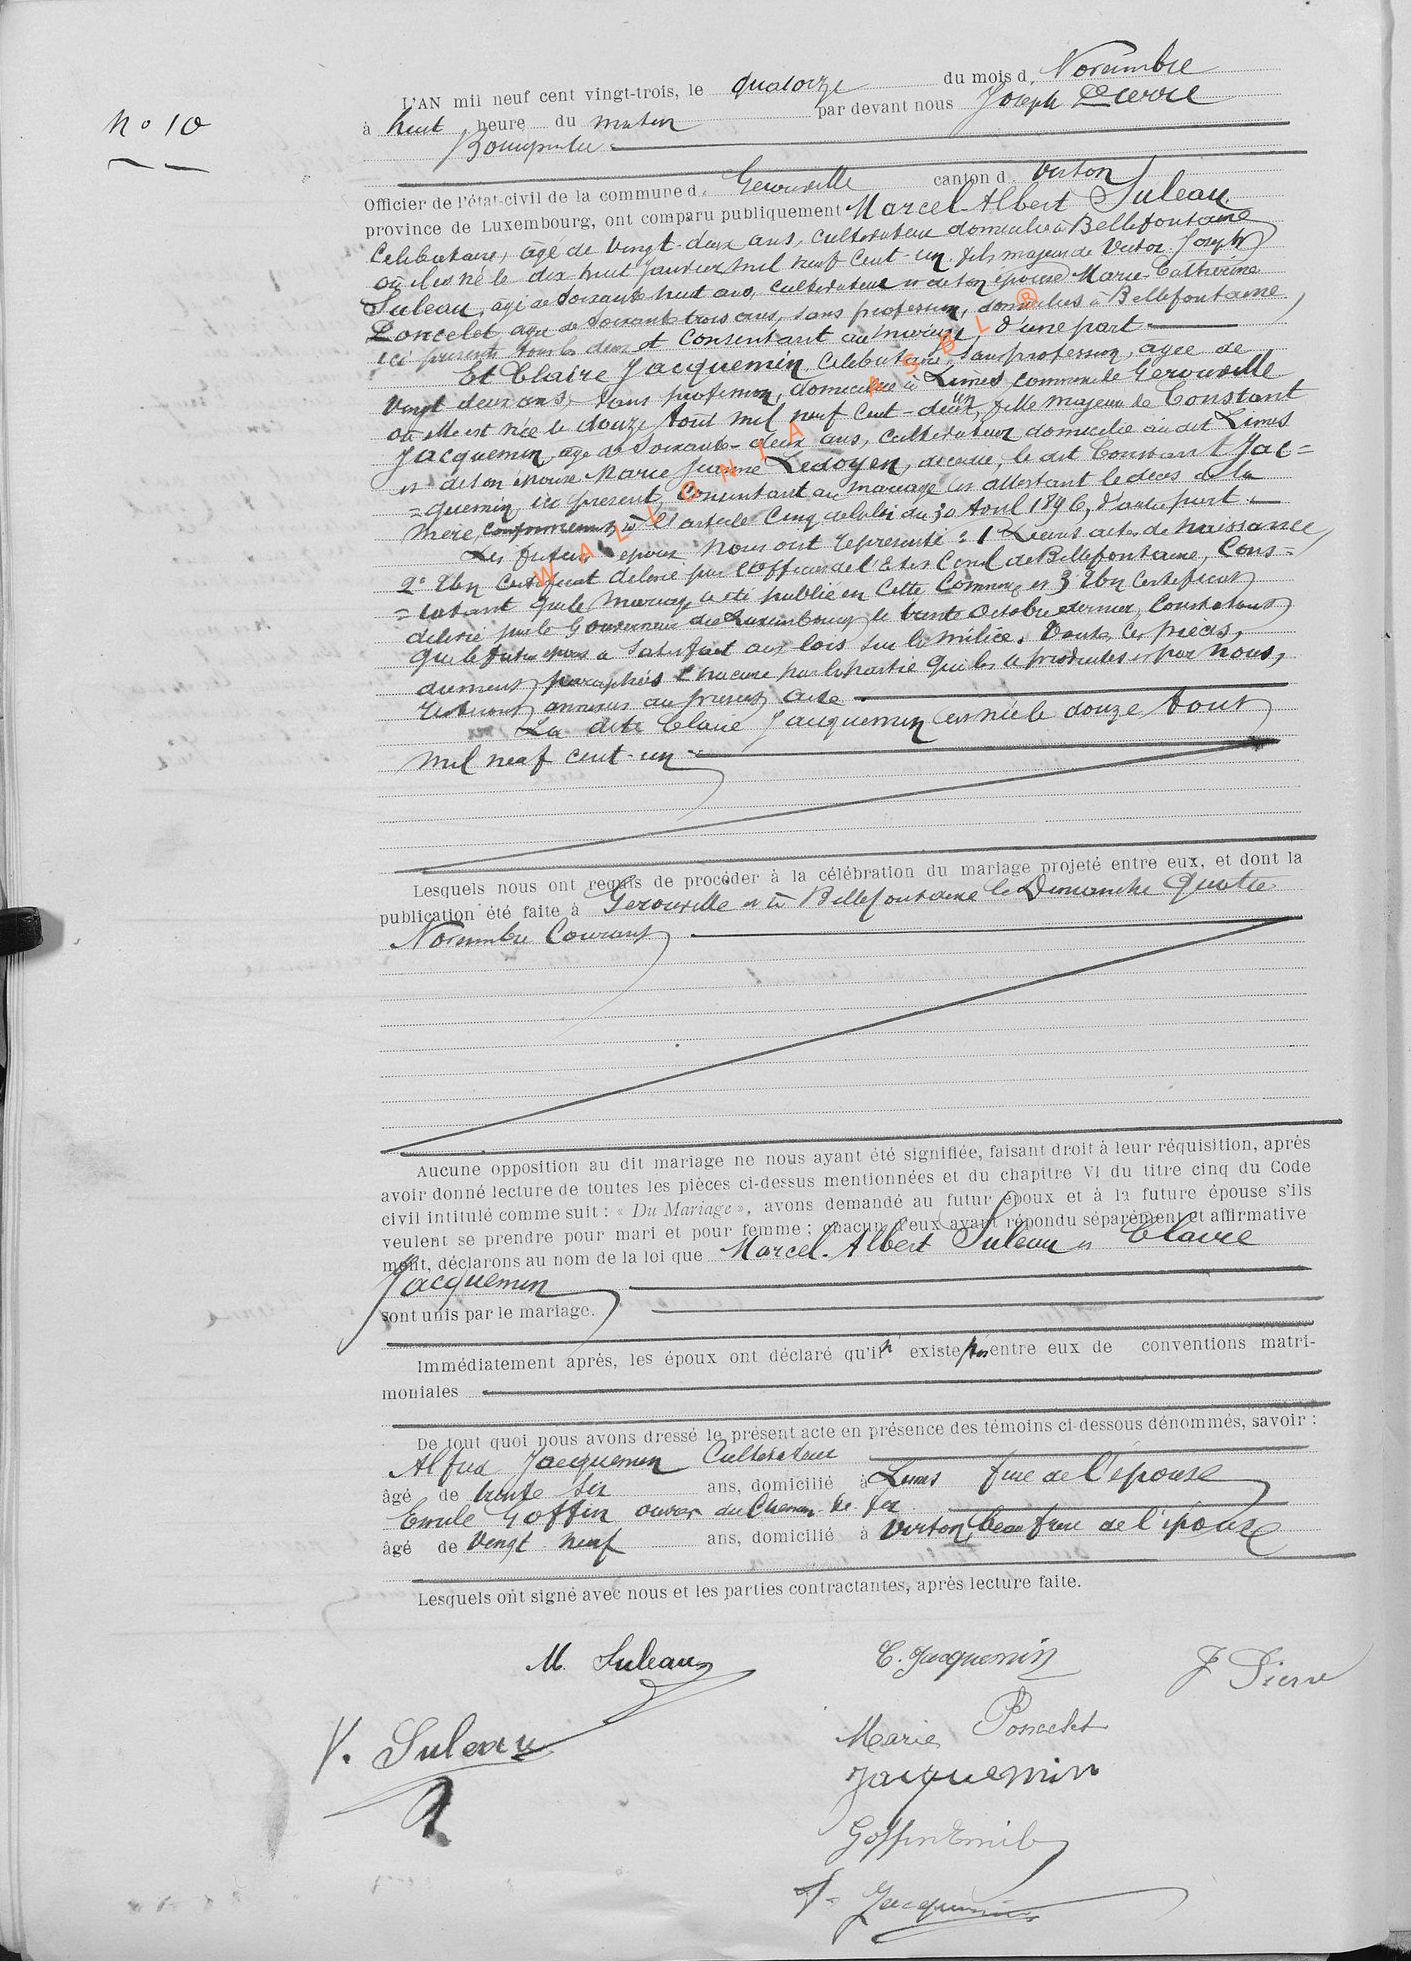 N° 10
L'AN mil neuf cent vingt-trois, le quatorze du mois d. Novembre
à huit heure du matin par devant nous Joseph Pierre
Bourgmestre
Officier de l'état-civil de la commune d. Gerouville canton d. Virton
province de Luxembourg, ont comparu publiquement Marcel-Albert Suleau
Célibataire, âgé de vingt-deux ans, cultivateur domicilié à Bellefontaine
où il est né le dix huit Janvier mil neuf cent-un fils majeur de Victor Joseph
Suleau, agé de Soixante huit ans, cultivateur et de son épouse Marie-Catherine
Poncelet agée de Soixante trois ans, sans profession, domiciliés à Bellefontaine
ici présents tous les deux et Consentant au mariage, d'une part
Et Claire Jacquemin Célibataire, sans profession, agée de
Vingt deux ans, sans profession, domiciliée à Limes commune de Gerouville
où elle est née le douze Aout mil neuf Cent-deux un, fille majeure de Constant
Jacquemin, agé de Soixante-deux ans, cultivateur domicilié au dit Limes
et de son épouse Marie Jeanne Ledoyen, décédée, le dit Constant Jac=
=quemin, ici présent, Consentant au mariage et attestant le décès de la
mère, conformément à l'article Cinq de la loi du 30 Avril 1896, d'autre part
Les futurs époux nous ont représenté : 1° Leurs actes de naissance
2° Un Certificat délivré par l'Officier de l'Etat Civil de Bellefontaine, Cons=
=tatant que le mariage a été publié en Cette Commune et 3° Un Certificat
délivré par le Gouverneur du Luxembourg le trente Octobre dernier, Constatant
que le futur époux a Satisfait aux lois sur la milice. Toutes Ces pièces,
dûment paraphées Chacune par la partie qui les a produites et par nous,
resteront annexées au présent acte
La dite Claire Jacquemin est née le douze Aout
mil neuf cent-un
Lesquels nous ont requis de procéder à la célébration du mariage projeté entre eux, et dont la
publication été faite à Gerouville et à Bellefontaine le Dimanche Quatre
Novembre Courant
Aucune opposition au dit mariage ne nous ayant été signifiée, faisant droit à leur réquisition, après
avoir donné lecture de toutes les pièces ci-dessus mentionnées et du chapitre VI du titre cinq du Code
civil intitulé comme suit : « Du Mariage », avons demandé au futur époux et à la future épouse s'ils
veulent se prendre pour mari et pour femme ; chacun d'eux ayant répondu séparément et affirmative
ment, déclarons au nom de la loi que Marcel-Albert Suleau et Claire
Jacquemin
sont unis par le mariage.
Immédiatement après, les époux ont déclaré qu'il n' existe pas entre eux de conventions matri-
moniales
De tout quoi nous avons dressé le présent acte en présence des témoins ci-dessous dénommés, savoir :
Alfred Jacquemin Cultivateur
âgé de trente six ans, domicilié à Limes frère de l'épouse
Emile Goffin ouvrier du Chemin de fer
âgé de Vingt neuf ans, domicilié à Virton, beau frère de l'épouse
Lesquels ont signé avec nous et les parties contractantes, après lecture faite.
M. Suleau C. Jacquemin J Pierre
V. Suleau Marie Poncelet
Jacquemin
Goffin Emile
Jacquemin
WALLONIA ASBL ®